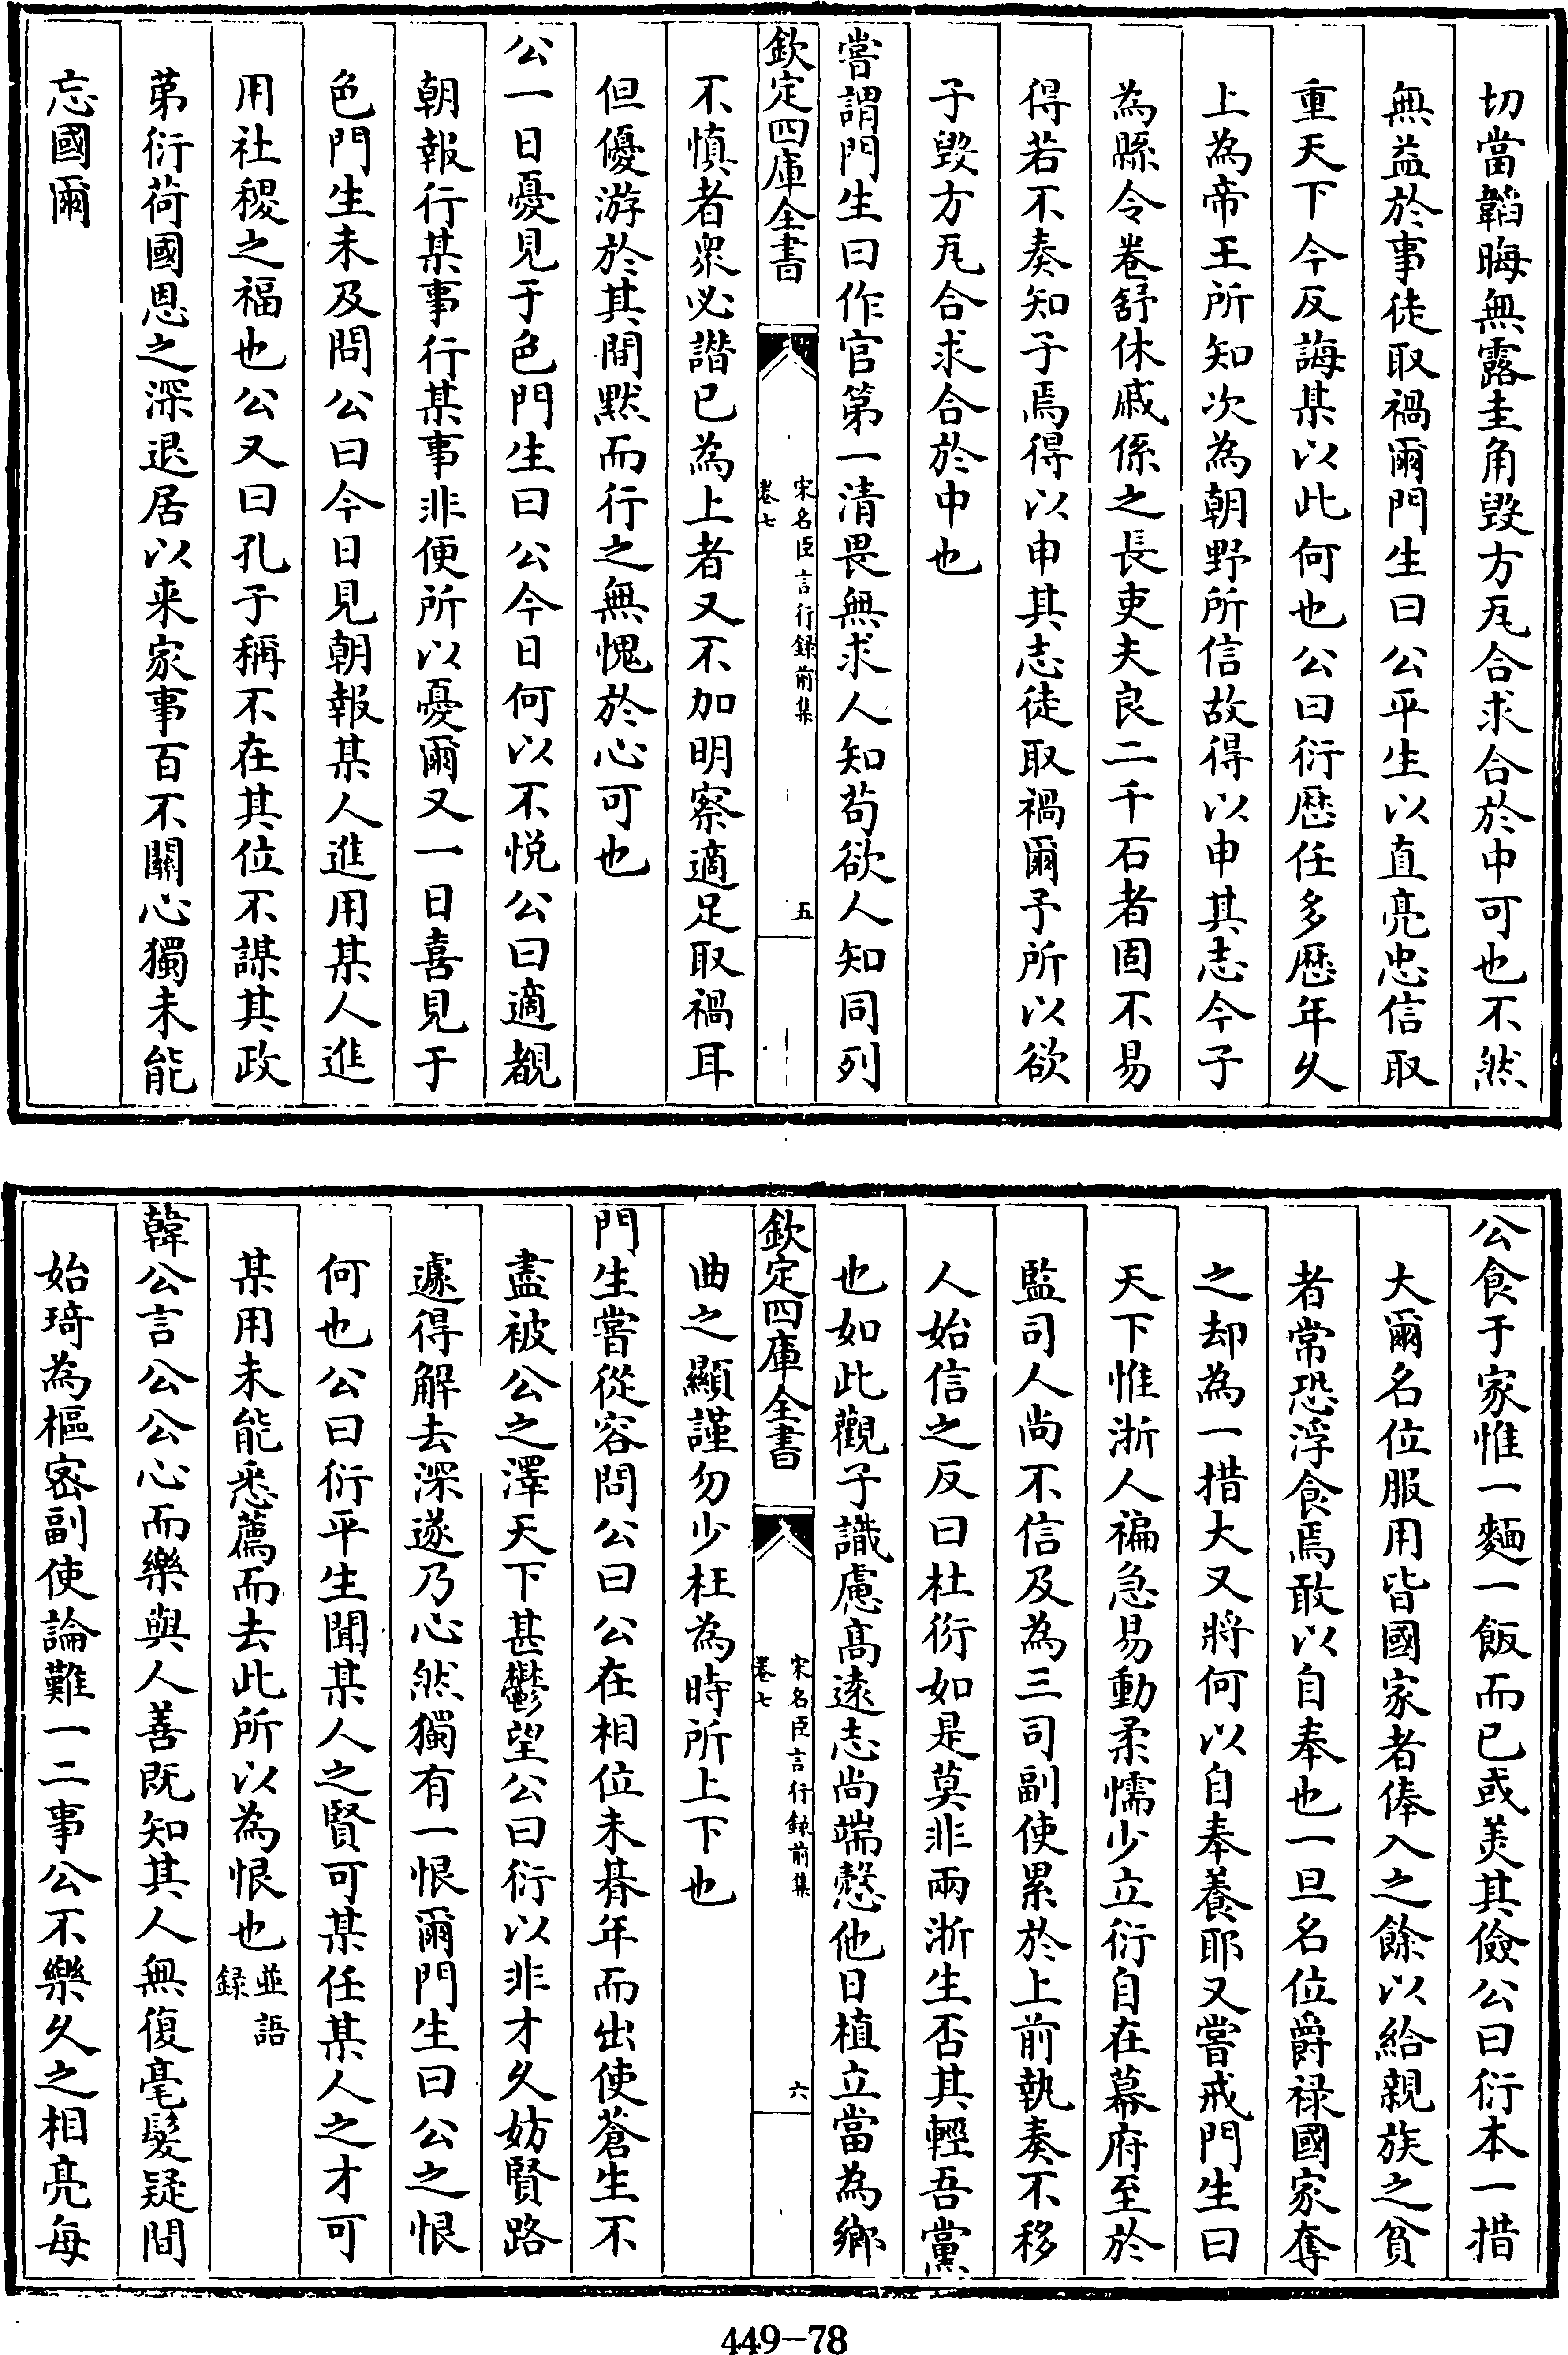 切當韜晦無露圭角毀方瓦合求合於中可也不然
無益於事徒取禍爾門生曰公平生以直亮忠信取
重天下今反誨某以此何也公曰衍歷任多歷年久
上為帝王所知次為朝野所信故得以申其志今子
為縣令卷舒休戚係之長吏夫良二千石者固不易
得若不奏知子焉得以申其志徒取禍爾予所以欲
子毀方瓦合求合於中也
嘗謂門生曰作官第一清畏無求人知苟欲人知同列
欽定四庫全書
宋名臣言行録前集
卷七
五
不慎者衆必譖已為上者又不加明察適足取禍耳
但優游於其間黙而行之無愧於心可也
公一日憂見于色門生曰公今日何以不悦公曰適覩
朝報行某事行某事非便所以憂爾又一日喜見于
色門生未及問公曰今日見朝報某人進用某人進
用社稷之福也公又曰孔子稱不在其位不謀其政
第衍荷國恩之深退居以來家事百不關心獨未能
忘國爾
公食于家惟一麵一飯而已或美其儉公曰衍本一措
大爾名位服用皆國家者俸入之餘以給親族之貧
者常恐浮食焉敢以自奉也一旦名位爵禄國家奪
之却為一措大又將何以自奉養耶又嘗戒門生曰
天下惟浙人褊急易動柔懦少立衍自在幕府至於
監司人尚不信及為三司副使累於上前執奏不移
人始信之反曰杜衍如是莫非兩浙生否其輕吾黨
也如此觀子識慮髙逺志尚端慤他日植立當為鄉
欽定四庫全書
宋名臣言行録前集
卷七
六
曲之顯謹勿少枉為時所上下也
門生嘗從容問公曰公在相位未朞年而出使蒼生不
盡被公之澤天下甚鬱望公曰衍以非才久妨賢路
遽得解去深遂乃心然獨有一恨爾門生曰公之恨
何也公曰衍平生聞某人之賢可某任某人之才可
某用未能悉薦而去此所以為恨也並語録
韓公言公公心而樂與人善既知其人無復毫髮疑間
始琦為樞密副使論難一二事公不樂久之相亮每
449-78